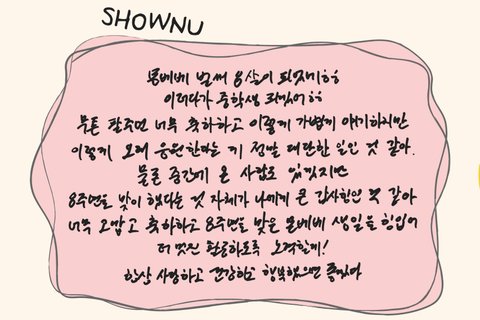 SHOWNU
몬베베 벌써 8살이 되었네ㅎㅎ
이러다가 중학생 되겠어ㅎㅎ
무튼 팔주년 너무 축하하고 이렇게 가볍게 얘기하지만
이렇게 오래 응원한다는 게 정말 대단한 일인 것 같아.
물론 중간에 온 사람도 있겠지만
8주년을 맞이 했다는 것 자체가 나에게 큰 감사함인 것 같아
너무 고맙고 축하하고 8주년을 맞은 몬베베 생일을 힘입어
더 멋진 활동하도록 노력할게!
항상 사랑하고 건강하고 행복했으면 좋겠다